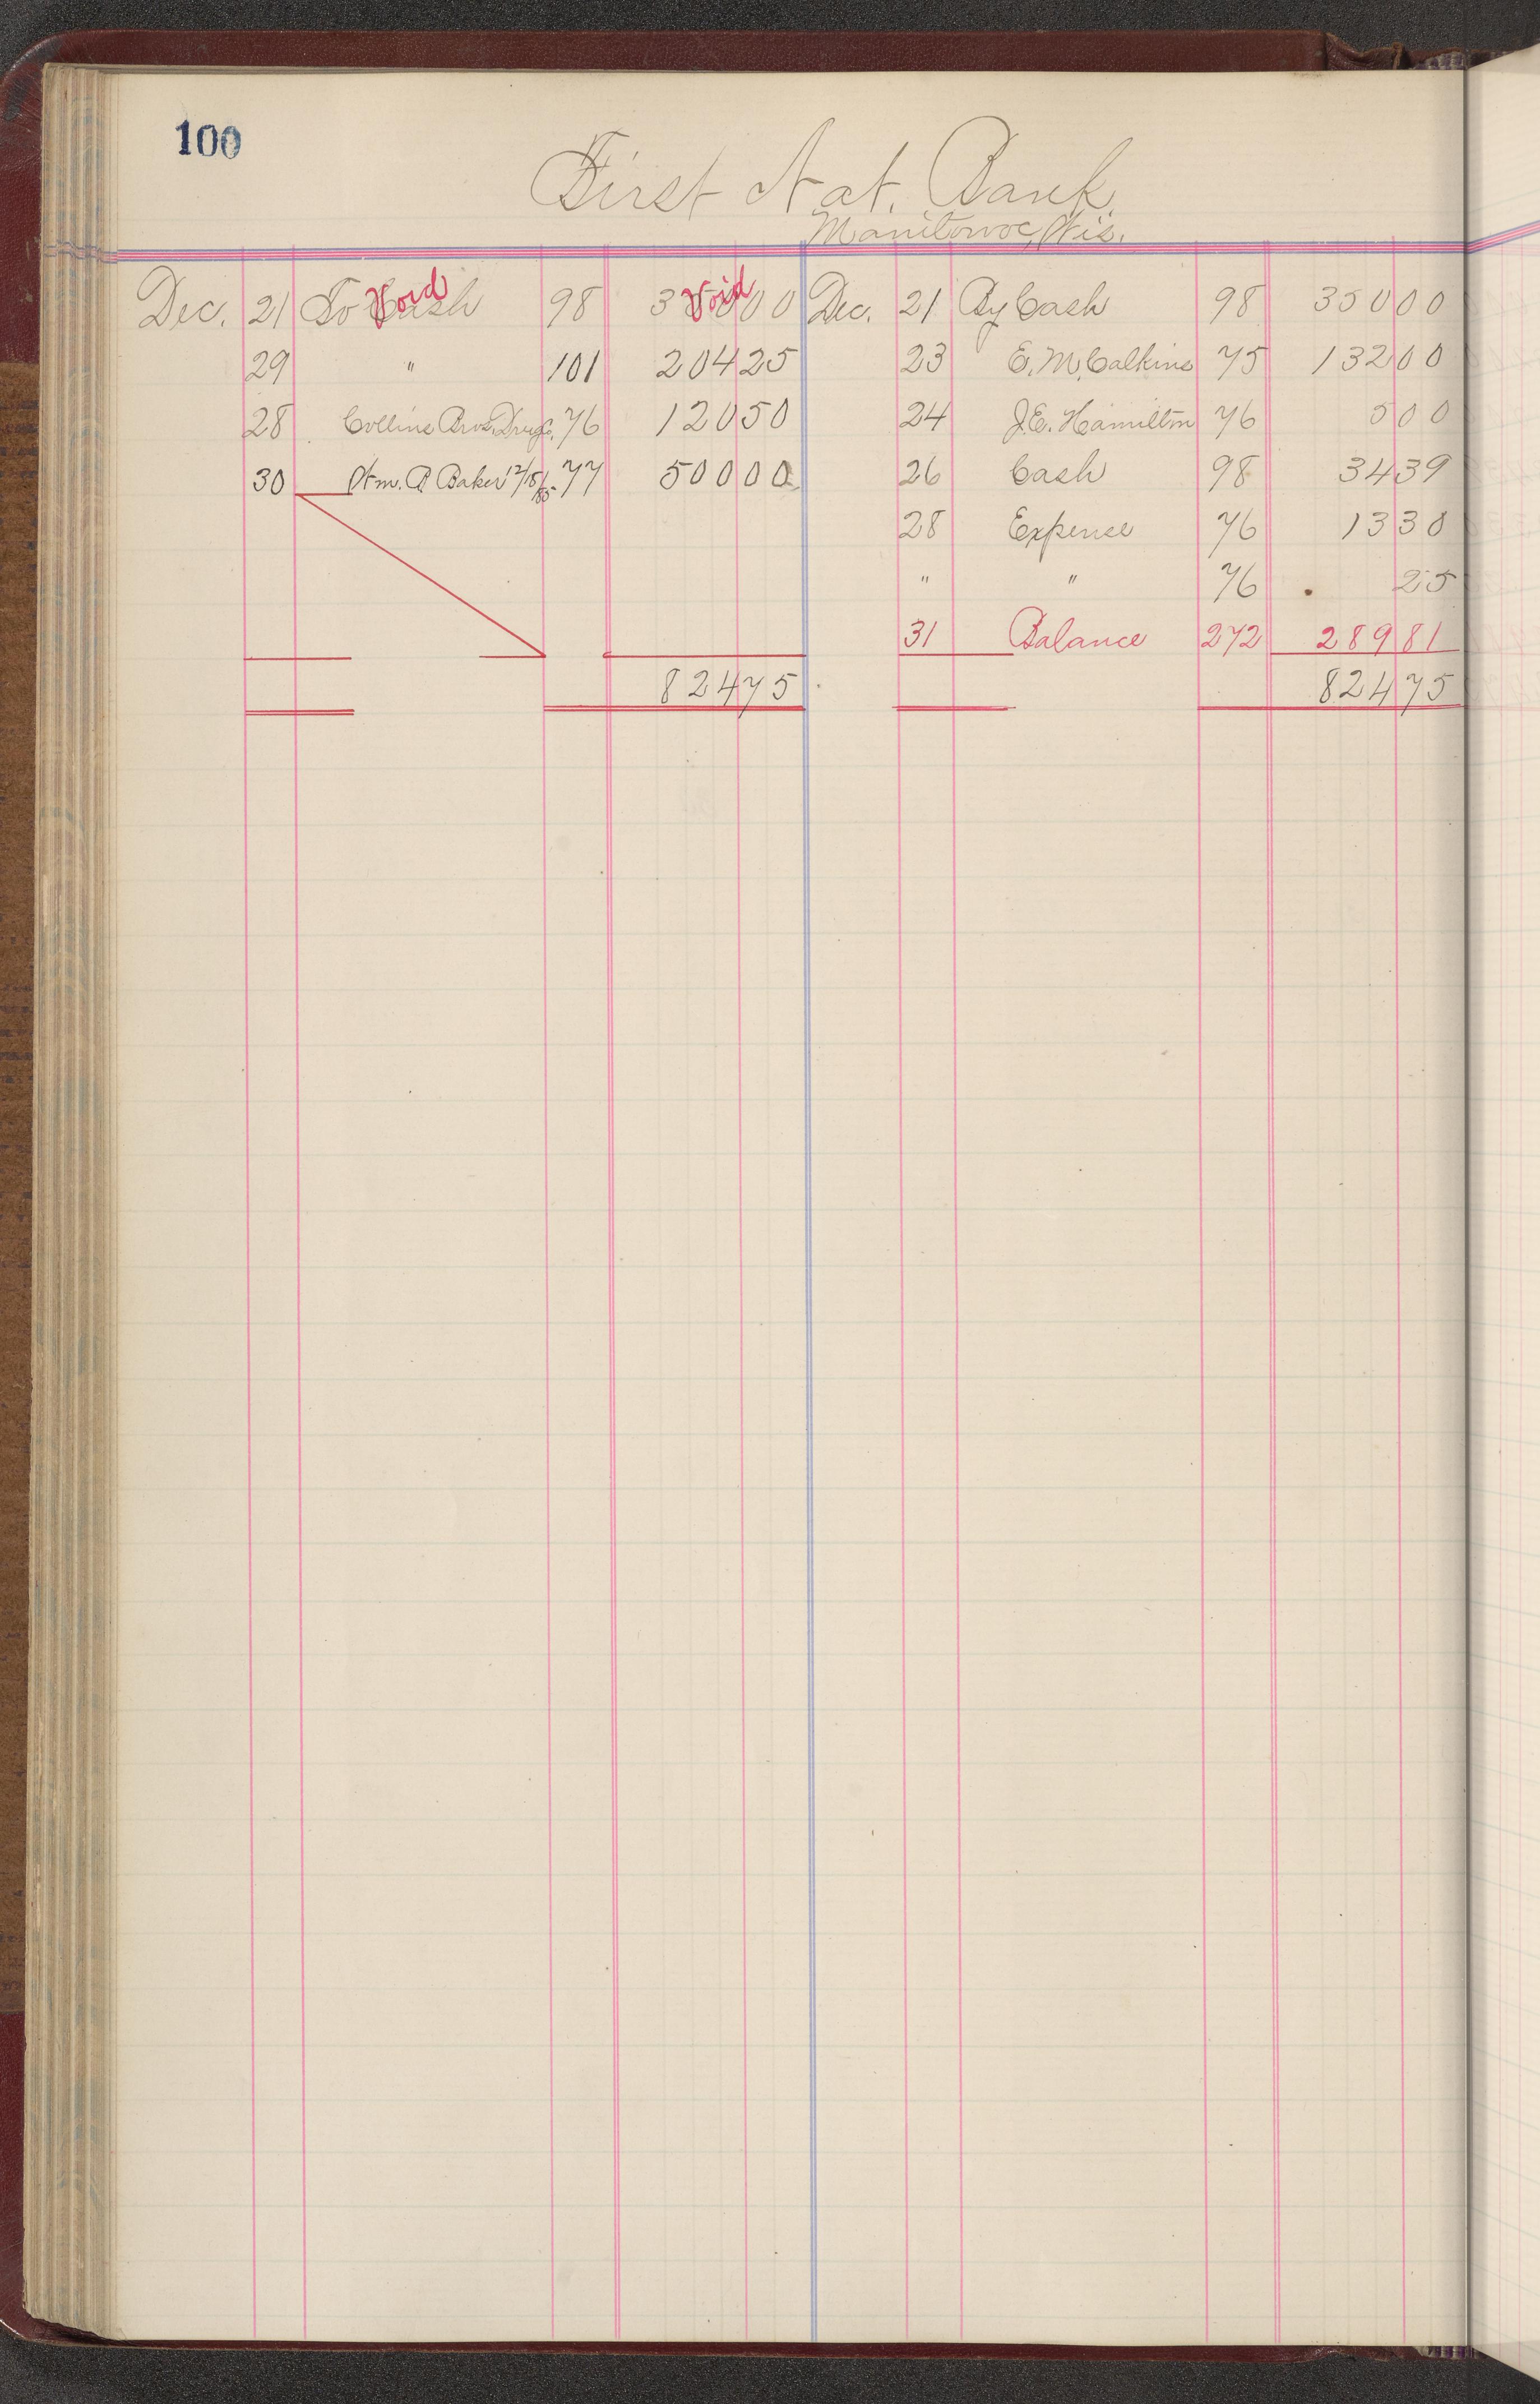 100
First Nat. Bank
Manitowoc, Wis.
Dec. 21 To Cash Void 98 350 00 Void Dec. 21 By Cash 98 350 00
29 " 101 204 25 23 E. M. Calkins 75 132 00
28 Collins Bros. Drug Co. 76 120 50 24 J. E. Hamilton 76 5 00
30 Wm. A Baker 12/18/85 77 500 00 26 Cash 98 34 39
28 Expense 76 13 30
" " 76 25
31 Balance 272 289 81
824 75 824 75